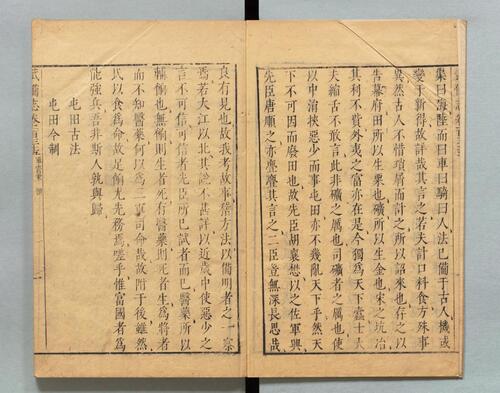 渠曰海陸而曰車曰騎曰人法已備于古人機或
變于新得故詳哉其言之若夫計口料食方殊事
異然古人不惜瑣屑而計之所以詔來也存之以
告幕府田所以生粟也礦所以生金也宋之坑冶
其利不貲外夷之富亦在是今獨為天下雲士大
夫縮舌不敢言此非礦之厲也司礦者之厲也使
以中涓挾惡少而事屯田亦不幾亂天下乎然天
下不可因而廢田也故先臣胡襄懋以之佐軍興
先臣唐順之亦亹亹其言之二臣豈無深長思哉
良有見也故我考故事稽方法以備明者之一察
焉若大江以北其說不甚詳以近歲中使惡少之
言不可信可信者先臣所已試者而已醫藥所以
輔備也無備則生者死有醫藥則死者生為將者
而不知醫藥何以為二軍司命哉故附于後雖然
民以食為命故足餉尤先務焉嗟乎惟富國者為
能強兵吾非斯人孰與歸
屯田古法
屯田今制
武備志卷